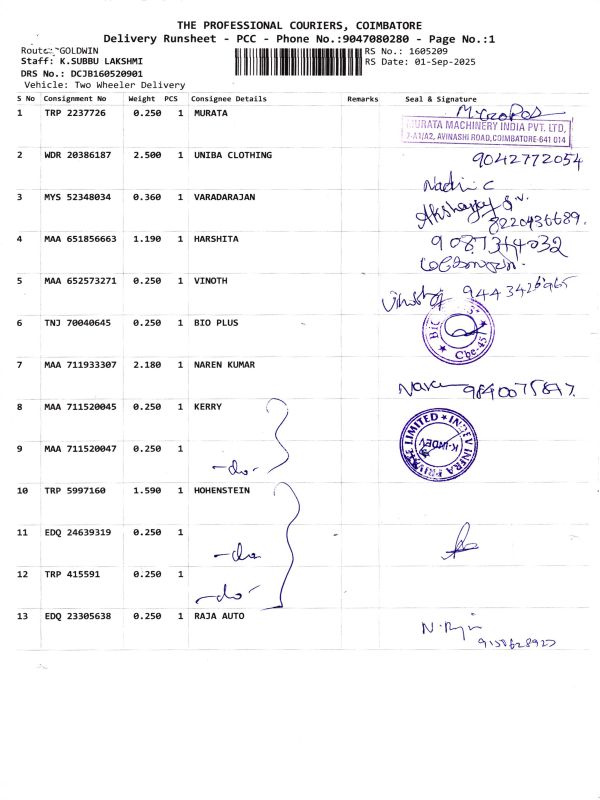 THE PROFESSIONAL COURIERS, COIMBATORE
Delivery Runsheet - PCC - Phone No.:9047080280 - Page No.:1
Route: GOLDWIN
RS No.: 1605209
Staff: K.SUBBU LAKSHMI
RS Date: 01-Sep-2025
DRS No.: DCJB160520901
Vehicle: Two Wheeler Delivery
S No Consignment No Weight PCS Consignee Details Remarks Seal & Signature
1 TRP 2237726 0.250 1 MURATA
MURATA MACHINERY INDIA PVT. LTD,
7-A1/A2, AVINASHI ROAD, COIMBATORE-641 014
2 WDR 20386187 2.500 1 UNIBA CLOTHING 9042772054
3 MYS 52348034 0.360 1 VARADARAJAN
8220436689.
4 MAA 651856663 1.190 1 HARSHITA
5 MAA 652573271 0.250 1 VINOTH
6 TNJ 70040645 0.250 1 BIO PLUS
7 MAA 711933307 2.180 1 NAREN KUMAR
8 MAA 711520045 0.250 1 KERRY
INDEV INFRA PRIVATE LIMITED
K-INDEV
9 MAA 711520047 0.250 1
-do-
10 TRP 5997160 1.590 1 HOHENSTEIN
11 EDQ 24639319 0.250 1
-do-
12 TRP 415591 0.250 1
-do-
13 EDQ 23305638 0.250 1 RAJA AUTO